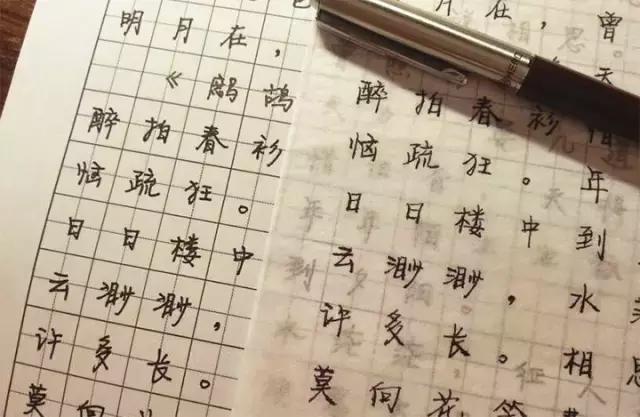 明月在,
《鹧鸪
醉拍春衫
恼疏狂。
日日楼中
云渺渺,
许多长。
莫向
月在,曾
天
醉拍春衫
恼疏狂。年
日日楼中到
云渺渺,水
许多长。相思
莫向花笺